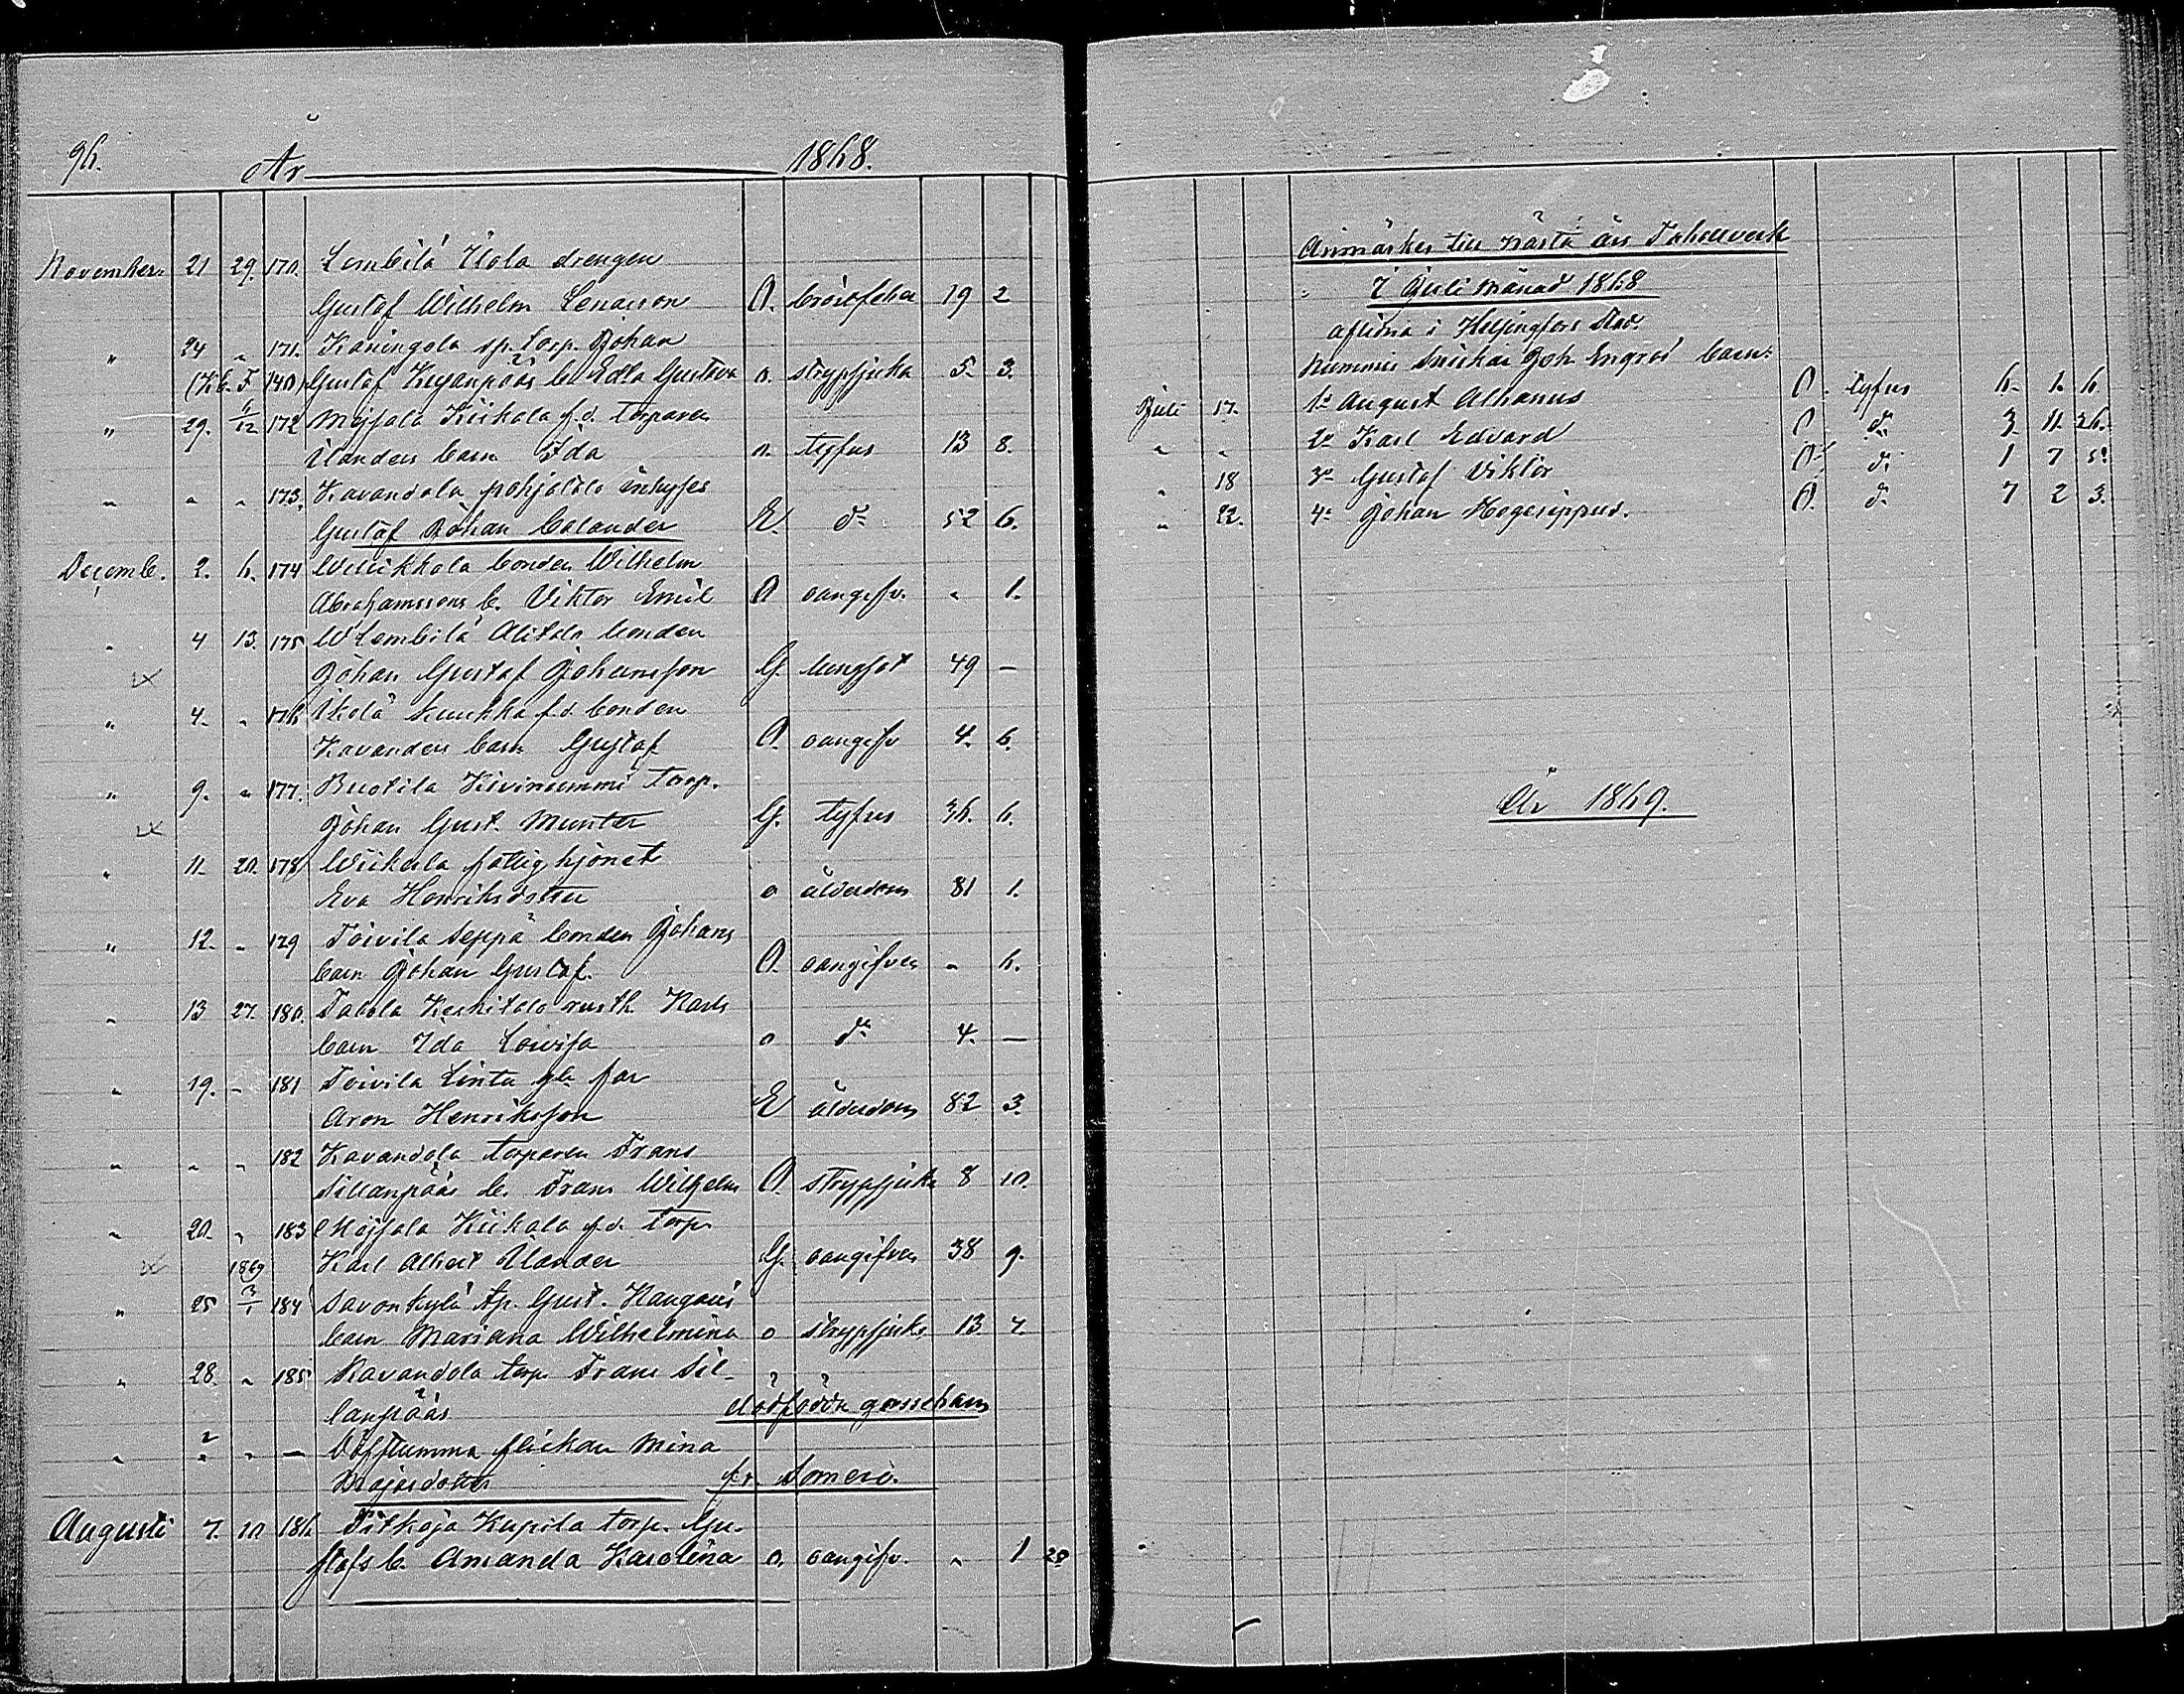 96. År 1868.
November. 21 29. 170. Lembilä Uola drengen
Gustaf Wilhelm Lenasson O. bröstfeber 19 2
" 24 " 171. Koningola sp. torp. Johan
(K.b. F 140) Gustaf Kejanpääs b. Edla Gustava o. strypsjuka 5. 3.
" 29. 6/12 172 Mejsala Kiikala f.d. torparen
Ulanders barn Ida o. tyfus 13 8.
" " " 173. Kavandola pohjatalo inhyses
Gustaf Johan Calander E. do 52 6.
Decemb. 2. 6. 174 Willikkala bonden Wilhelm
Abrahamssons b. Viktor Emil O oangifv. " 1.
" 4 13. 175 W Lembilä Alitalo bonden
Johan Gustaf Johansson G. lungsot 49 —
" 4. " 176 Ikolä f.d. bonden
Kavanders barn Gustaf O. oangifv 4. 6.
" 9. " 177. Buotila Kivinummi torp.
Johan Gust. Munter G. tyfus 36. 6.
" 11. 20. 178 Wiikula fattighjonet
Eva Henriksdotter o ålderdom 81 1.
" 12. " 179 Toivila Seppä bonden Johans
barn Johan Gustaf. O. oangifven " 6.
" 13 27. 180. Talola Keskitalo rusth. Karls
barn Ida Lovisa o do 4. —
" 19. " 181 Toivila Lintu gla far
Aron Henriksson E ålderdom 82 3.
" " " 182 Kavandola torparen Frans
Sillanpääs b. Frans Wilhelm O. strypsjuka 8 10.
" 20. " 183 Mejsala Kiikala f.d. torp.
1869 Karl Albert Ulander G. oangifven 38 9.
" 25 3/1 184 Savonkylä tp. Gust.
barn Mariana Wilhelmina o strypsjuka 13 7.
" 28. " 185 Kavandola torp. Frans Sil-
lanpääs dödfödda gossebarn
" " " — flickan Mina
Majasdotter fr. Somero.
Augusti 7. 10 186 Pitkoja Kupila torp. Gu-
stafs b. Amanda Karolina o. oangifv. " 1 28
Anmärkes till nästa års Tabellverk
i Juli månad 1868
aflidna i Helsingfors Stad.
Nummis Snickar Joh. Engros barn:
Juli 17. 1o August Albanus O. tyfus 6. 1. 6.
" " 2o Karl Edvard O do 3. 11. 26.
" 18 3o Gustaf Viktor O. do 1 7 5.
" 22. 4o Johan Hegesippus. O. do 7 2 3.
År 1869.